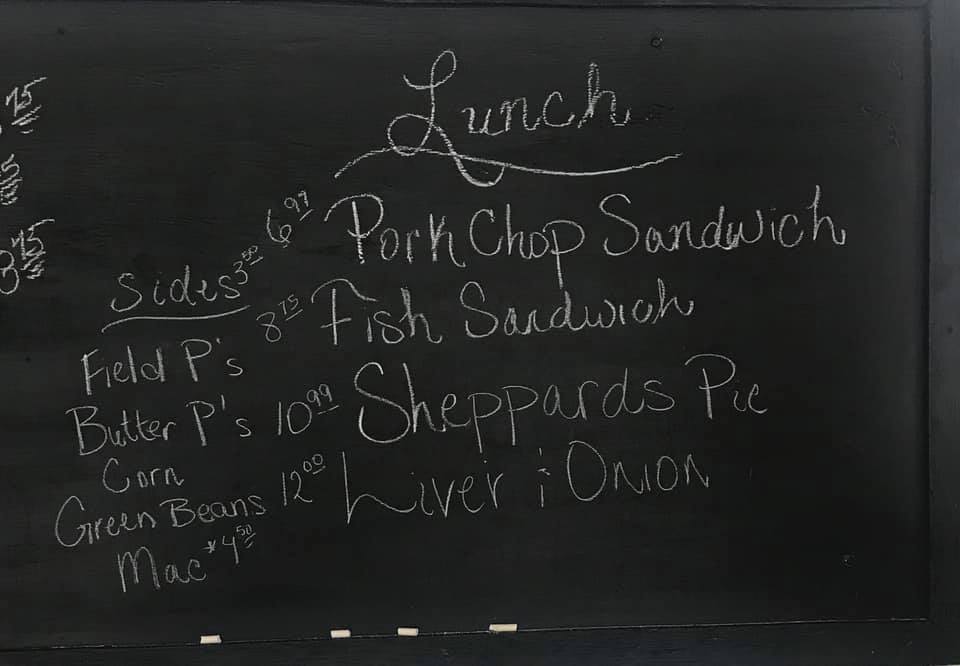 Lunch
6.99 Pork Chop Sandwich
8.75 Fish Sandwich
10.99 Sheppards Pie
12.00 Liver & Onion
Sides 3.50
Field P's
Butter P's
Corn
Green Beans
Mac *4.50